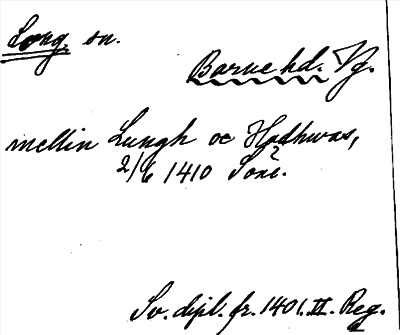 Long, sn.
Barne hd. Vg.
mellin Lungh oc Hadhwas,
2/6 1410 Sone.
Sv. dipl. fr. 1401. II. Reg.